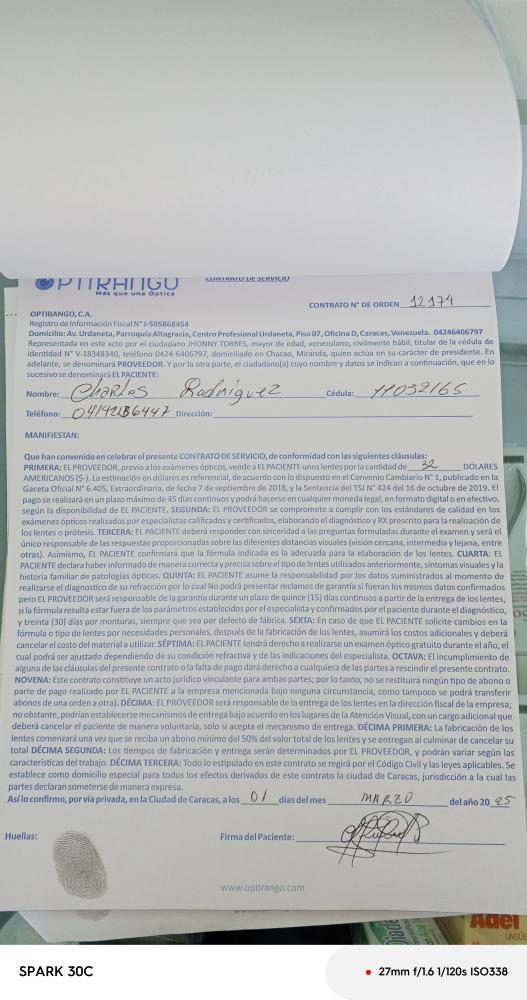 OPTIRANGO
Más que una Optica
CONTRATO DE SERVICIO
CONTRATO N° DE ORDEN 12174
OPTIRANGO, C.A.
Registro de Información Fiscal N° J-505868454
Domicilio: Av. Urdaneta, Parroquia Altagracia, Centro Profesional Urdaneta, Piso 07, Oficina D, Caracas, Venezuela. 04246406797
Representada en este acto por el ciudadano JHONNY TORRES, mayor de edad, venezolano, civilmente hábil, titular de la cédula de
identidad N° V-18348340, teléfono 0424-6406797, domiciliado en Chacao, Miranda, quien actúa en su carácter de presidente. En
adelante, se denominará PROVEEDOR. Y por la otra parte, el ciudadano(a) cuyo nombre y datos se indican a continuación, que en lo
sucesivo se denominará EL PACIENTE:
Nombre: Charles Rodriguez Cédula: 11032165
Teléfono: Dirección:
MANIFIESTAN:
Que han convenido en celebrar el presente CONTRATO DE SERVICIO, de conformidad con las siguientes cláusulas:
PRIMERA: EL PROVEEDOR, previo a los exámenes ópticos, vende a EL PACIENTE unos lentes por la cantidad de 32 DÓLARES
AMERICANOS ($-). La estimación en dólares es referencial, de acuerdo con lo dispuesto en el Convenio Cambiario N° 1, publicado en la
Gaceta Oficial N° 6.405, Extraordinaria, de fecha 7 de septiembre de 2018, y la Sentencia del TSJ N° 424 del 16 de octubre de 2019. El
pago se realizará en un plazo máximo de 45 días continuos y podrá hacerse en cualquier moneda legal, en formato digital o en efectivo,
según la disponibilidad de EL PACIENTE. SEGUNDA: EL PROVEEDOR se compromete a cumplir con los estándares de calidad en los
exámenes ópticos realizados por especialistas calificados y certificados, elaborando el diagnóstico y RX prescrito para la realización de
los lentes o prótesis. TERCERA: EL PACIENTE deberá responder con sinceridad a las preguntas formuladas durante el examen y será el
único responsable de las respuestas proporcionadas sobre las diferentes distancias visuales (visión cercana, intermedia y lejana, entre
otras). Asimismo, EL PACIENTE confirmará que la fórmula indicada es la adecuada para la elaboración de los lentes. CUARTA: EL
PACIENTE declara haber informado de manera correcta y precisa sobre el tipo de lentes utilizados anteriormente, síntomas visuales y la
historia familiar de patologías ópticas. QUINTA: EL PACIENTE asume la responsabilidad por los datos suministrados al momento de
realizarse el diagnostico de su refracción por lo cual No podrá presentar reclamos de garantía si fueron los mismos datos confirmados
pero EL PROVEEDOR será responsable de la garantía durante un plazo de quince (15) días continuos a partir de la entrega de los lentes,
si la fórmula resulta estar fuera de los parámetros establecidos por el especialista y confirmados por el paciente durante el diagnóstico,
y treinta (30) días por monturas, siempre que sea por defecto de fábrica. SEXTA: En caso de que EL PACIENTE solicite cambios en la
fórmula o tipo de lentes por necesidades personales, después de la fabricación de los lentes, asumirá los costos adicionales y deberá
cancelar el costo del material a utilizar. SÉPTIMA: EL PACIENTE tendrá derecho a realizarse un examen óptico gratuito durante el año, el
cual podrá ser ajustado dependiendo de su condición refractiva y de las indicaciones del especialista. OCTAVA: El incumplimiento de
alguna de las cláusulas del presente contrato o la falta de pago dará derecho a cualquiera de las partes a rescindir el presente contrato.
NOVENA: Este contrato constituye un acto jurídico vinculante para ambas partes; por lo tanto, no se restituirá ningún tipo de abono o
parte de pago realizado por EL PACIENTE a la empresa mencionada bajo ninguna circunstancia, como tampoco se podrá transferir
abonos de una orden a otra). DÉCIMA: EL PROVEEDOR será responsable de la entrega de los lentes en la dirección fiscal de la empresa;
no obstante, podrían establecerse mecanismos de entrega bajo acuerdo en los lugares de la Atención Visual, con un cargo adicional que
deberá cancelar el paciente de manera voluntaria, solo si acepta el mecanismo de entrega. DÉCIMA PRIMERA: La fabricación de los
lentes comenzará una vez que se reciba un abono mínimo del 50% del valor total de los lentes y se entregan al culminar de cancelar su
total DÉCIMA SEGUNDA: Los tiempos de fabricación y entrega serán determinados por EL PROVEEDOR, y podrán variar según las
características del trabajo. DÉCIMA TERCERA: Todo lo estipulado en este contrato se regirá por el Código Civil y las leyes aplicables. Se
establece como domicilio especial para todos los efectos derivados de este contrato la ciudad de Caracas, jurisdicción a la cual las
partes declaran someterse de manera expresa.
Así lo confirmo, por vía privada, en la Ciudad de Caracas, a los 01 días del mes MARZO del año 20 25
Huellas: Firma del Paciente:
www.optirango.com
SPARK 30C 27mm f/1.6 1/120s ISO338